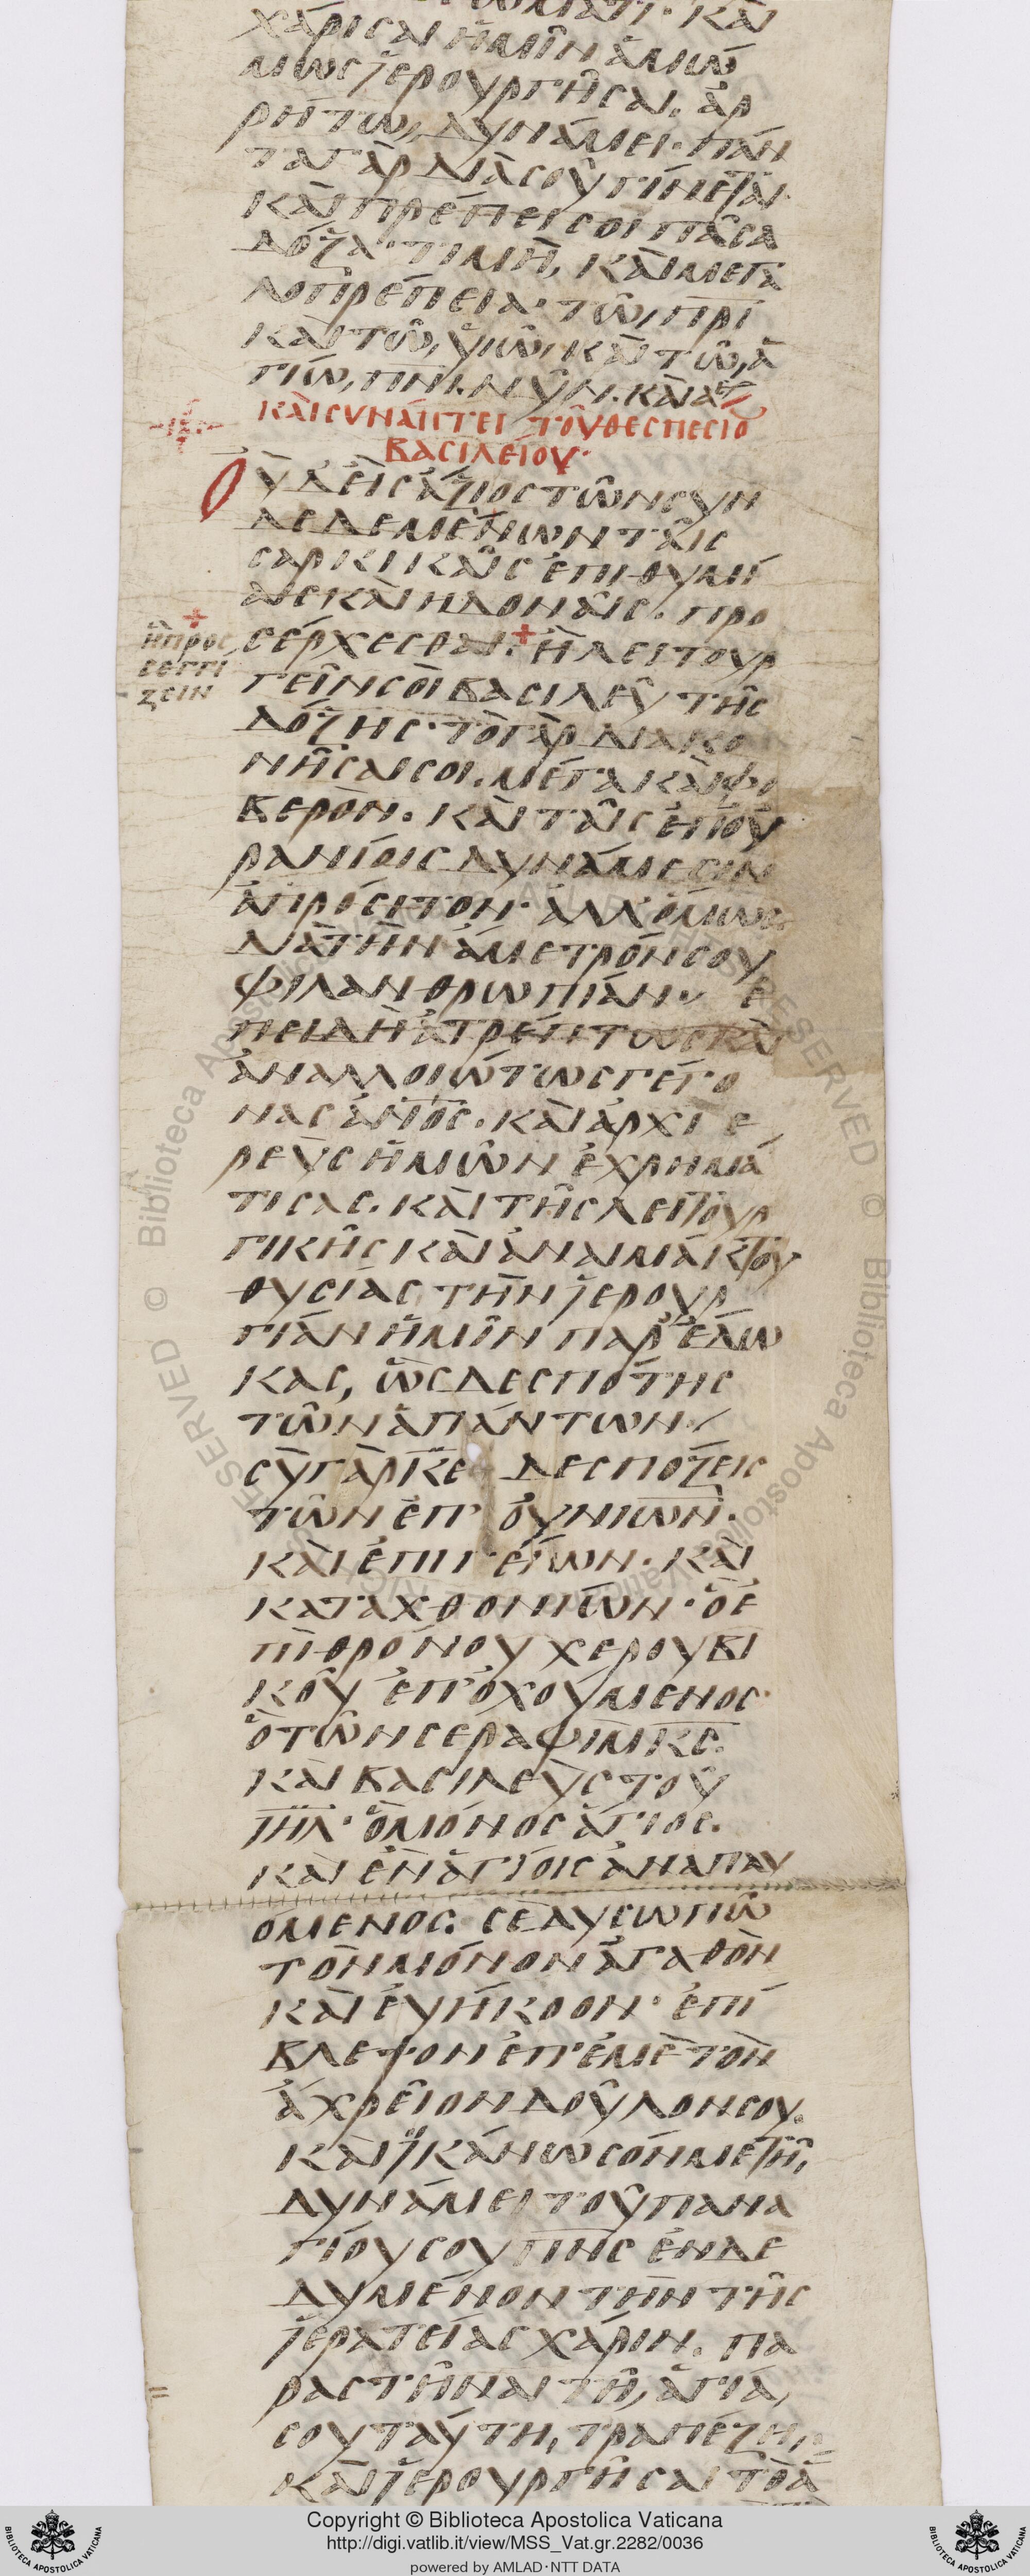 χάρισαι ἡμῖν ἀμώ
μως ἱερουργῆσαι. ἀρ
ρήτω δυνάμει· πάν
τα γὰρ διὰ σοῦ γίνεται·
καὶ πρέπει σοι πᾶσα
δόξα· τιμὴ, καὶ μεγα
λοπρέπεια· τῶ πρι
καὶ τῶ υἱῶ, καὶ τῶ ἁ
γίω πνι. νῦν. καὶ αει
καὶ συνάπτει τοῦ θεσπεσίου
βασιλείου·
Οὐδεὶς ἄξιος τῶν συν
δεδεμένων ταῖς
σαρκικαῖς ἐπιθυμί
αις καὶ ἡδοναῖς. προ
σέρχεσθαι. + ἢ λειτουρ
+
ἢ προς
εεγγι
ζειν
γεῖν σοὶ βασιλεῦ τῆς
δόξης· τὸ γὰρ διακο
νῆσαι σοι. μέγα καὶ φο
βερὸν. καὶ ταῖς ἐπου
ρανίοις δυνάμεσιν
ἀπρόσιτον· ἀλλ' ὅμως
διὰ τὴν ἄμετρόν σου
φιλανθρωπίαν· ἐ
πειδὴ ἀτρέπτως καὶ
ἀναλλοιώτως γέγο
νας ἄνος. καὶ ἀρχιε
ρεὺς ἡμῶν ἐχρημά
τισας. καὶ τῆς λειτουρ
γικῆς καὶ ἀναιμάκτου
θυσίας τὴν ἱερουρ
γίαν ἡμῖν παρέδω
κας, ὡς δεσπότης
τῶν ἁπάντων·
σὺ γὰρ κε δεσπόζεις
τῶν ἐπουνιων.
καὶ ἐπιγείων. καὶ
καταχθονίων· ὁ ἐ
πὶ θρόνου χερουβι
κοῦ ἐποχούμενος·
ὁ τῶν σεραφὶμ κς.
καὶ βασιλεὺς τοῦ
ιηλ· ὁ μόνος ἅγιος.
καὶ ἐν ἁγίοις ἀναπαυ
όμενος. σὲ δυσωπῶ
τὸν μόνον ἀγαθὸν
καὶ εὐήκοον· ἐπί
βλεψον ἐπ' ἐμὲ τὸν
ἀχρεῖον δοῦλον σου.
καὶ ἱκάνωσόν με τῆ
δυνάμει τοῦ πανα
γίου σου πνς ἐνδε
δυμένον τὴν τῆς
ἱερατείας χάριν. πα
ραστῆναι τῆ ἁγία
σου ταύτη τραπέζη,
καὶ ἱερουργῆσαι τὸ ἅ
Copyright © Biblioteca Apostolica Vaticana
http://digi.vatlib.it/view/MSS_Vat.gr.2282/0036
powered by AMLAD·NTT DATA